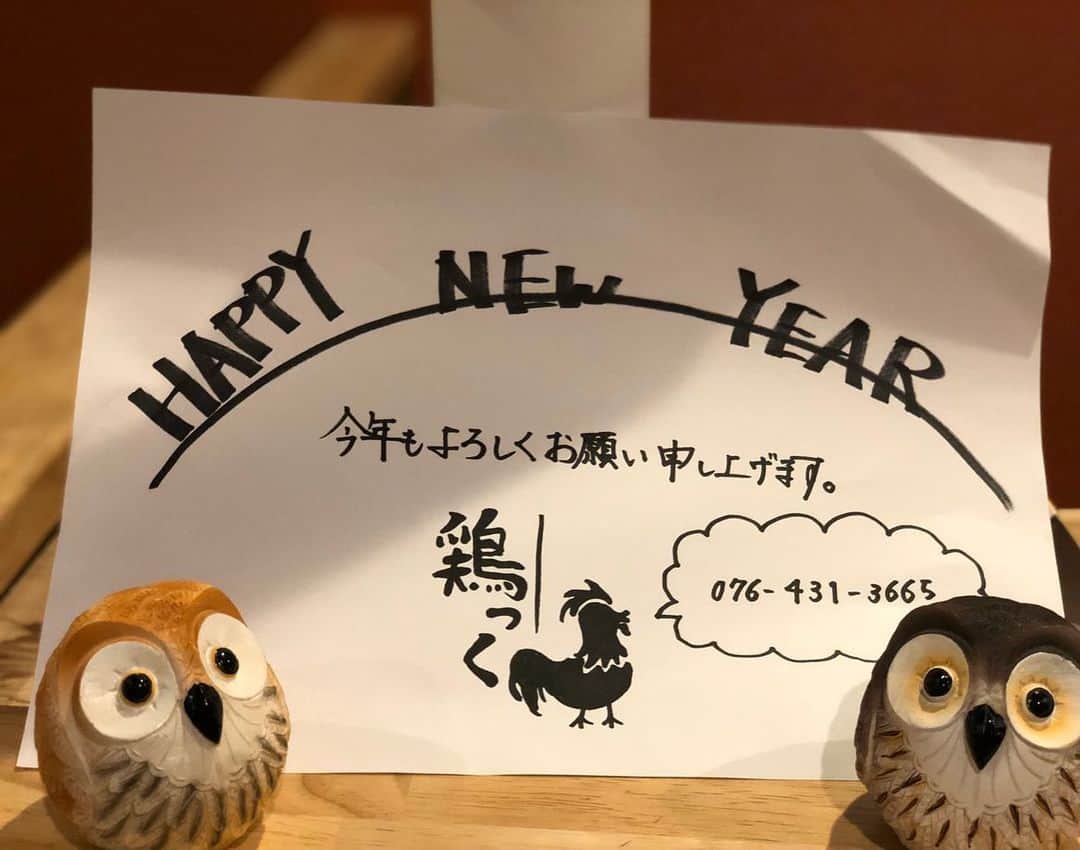 HAPPY NEW YEAR
今年もよろしくお願い申し上げます。
鶏っく
076-431-3665